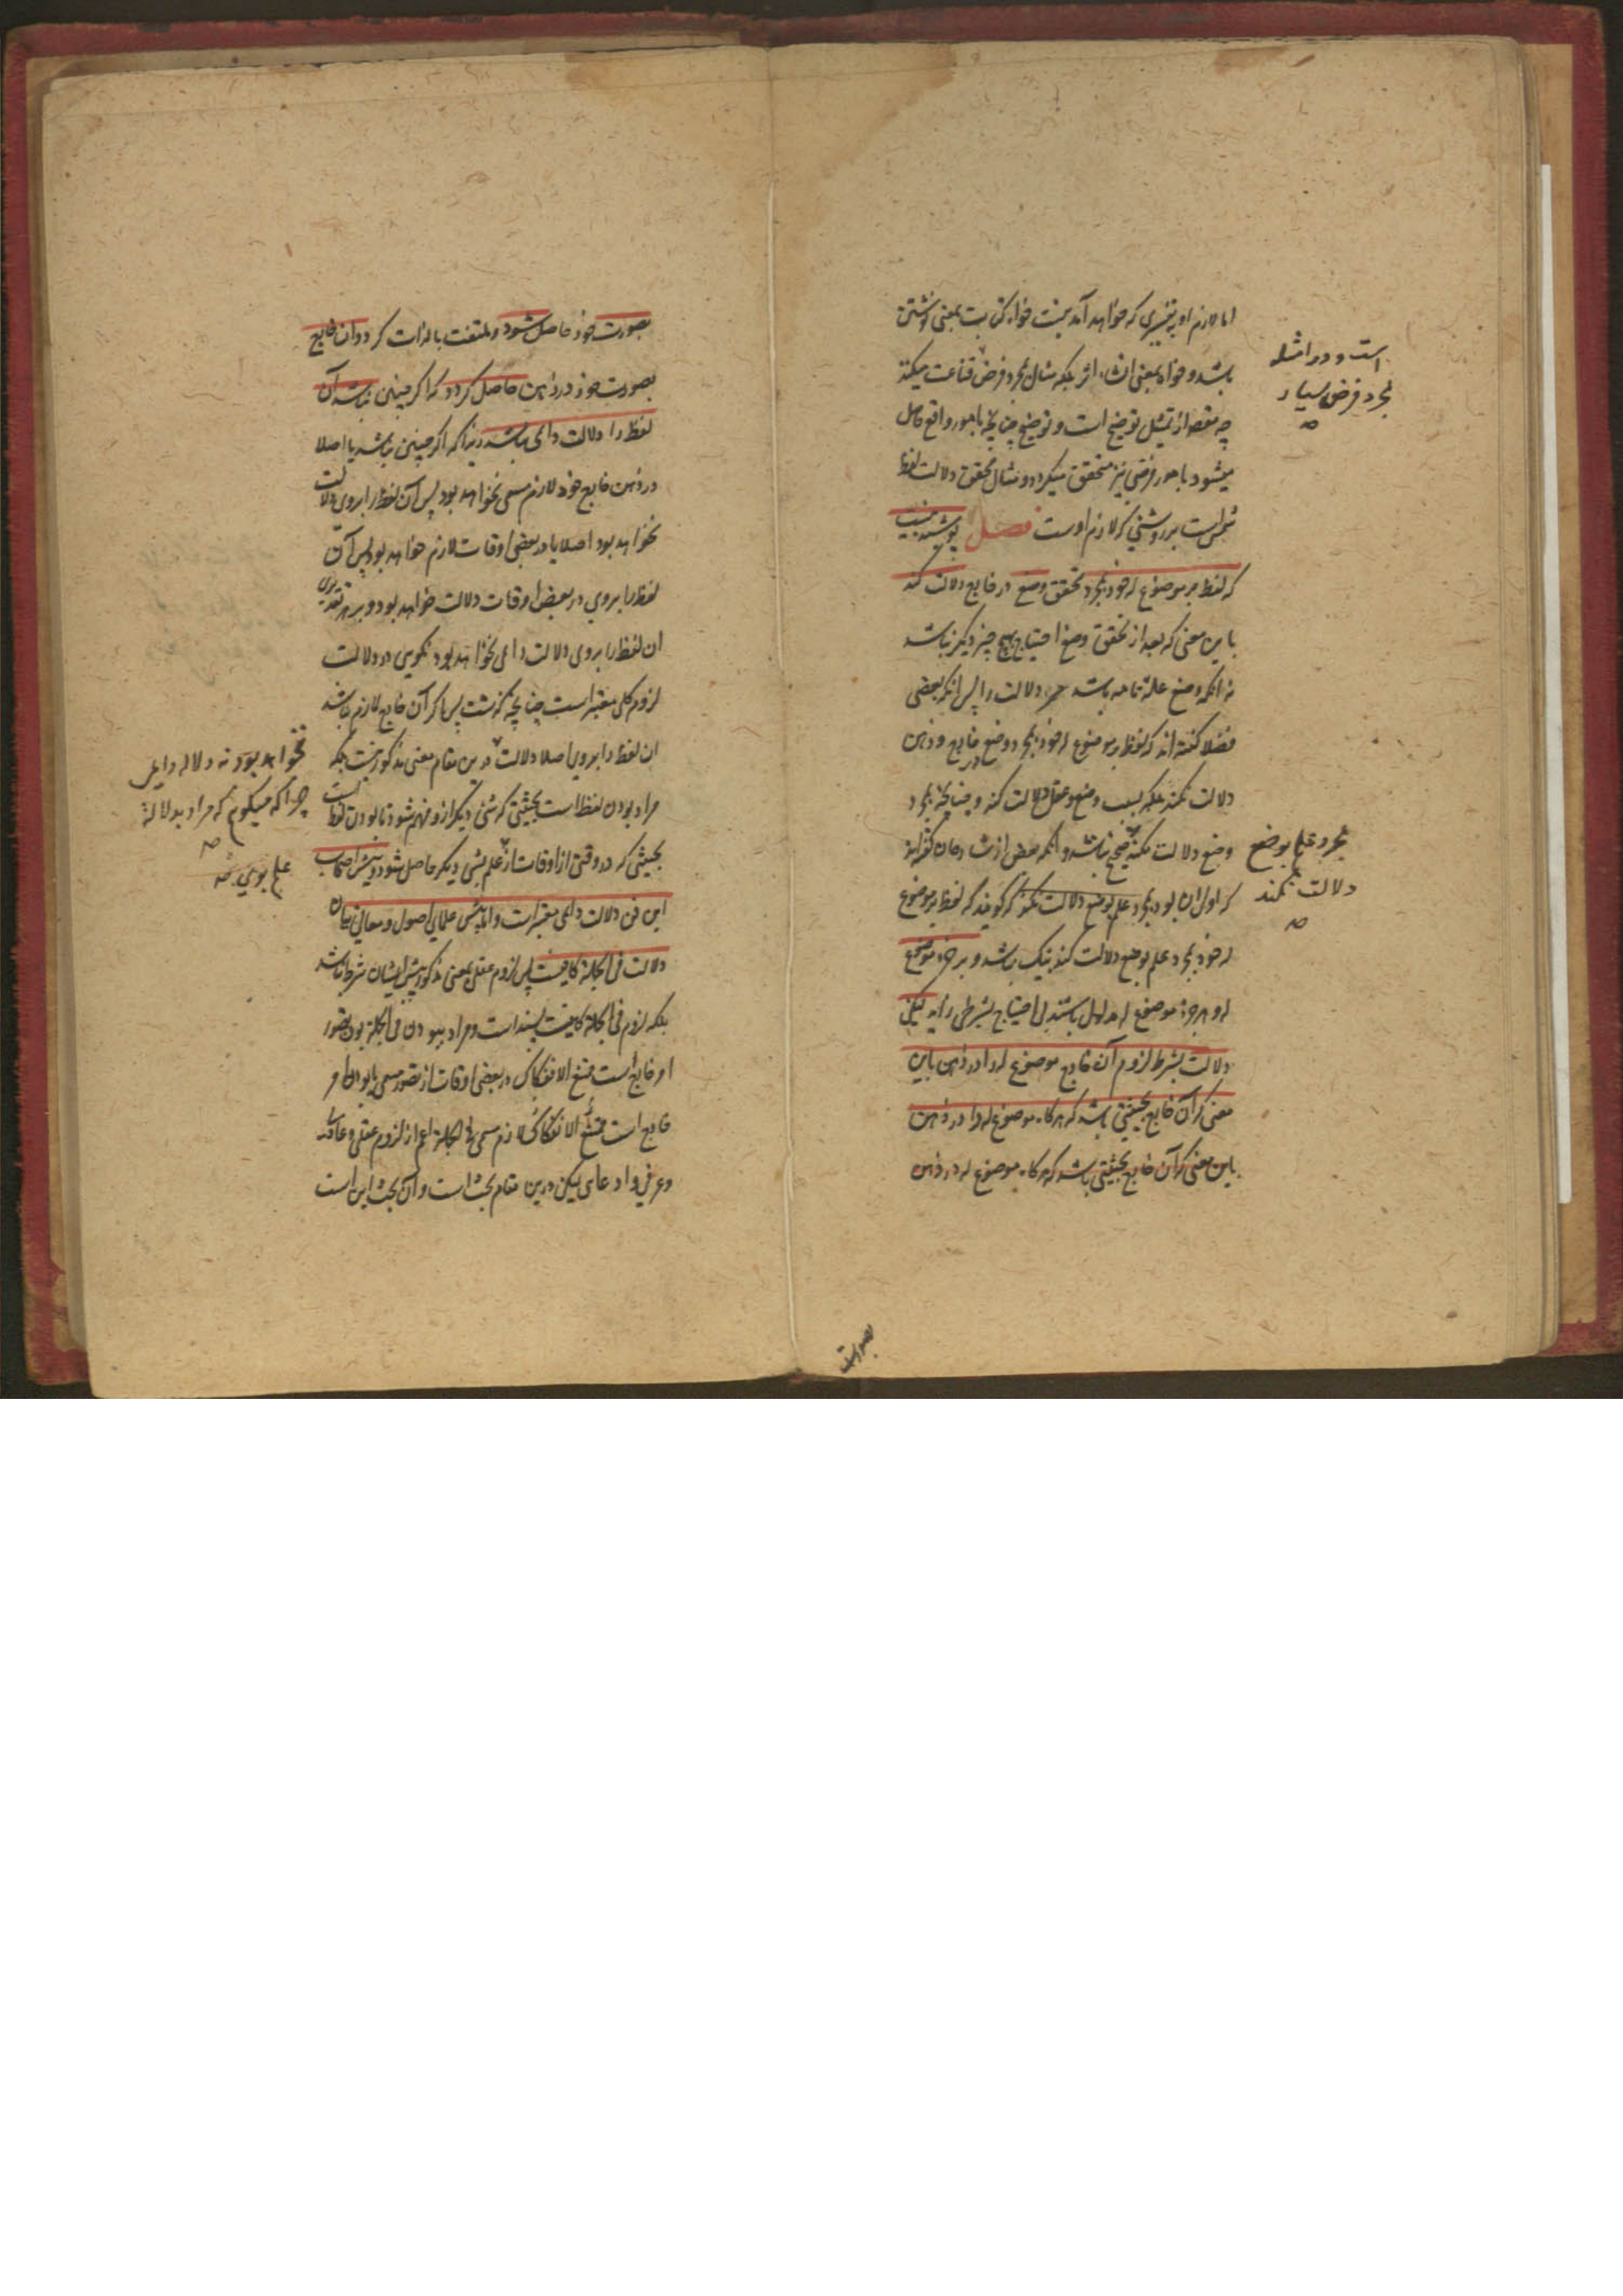 اما لازم او بتفسیری که خواهد آمد نیست خواه کتابت بمعنی نوشتن
باشد و خواه بمعنی انشاء اثر بلکه مثال بمجرد فرض قناعت میکند
چه مقصود از تمثیل توضیح است و توضیح چنانچه بامور واقع حاصل
میشود بامور فرضی نیز متحقق میگردد و مثال محقق دلالت لفظ
شمس است بر روشنی که لازم اوست فصل پوشیده نیست
که لفظ بر موضوع له خود بمجرد تحقق وضع در خارج دلالت کند
باین معنی که بعد از تحقق وضع احتیاج بهیچ چیز دیگر نباشد
نه آنکه وضع علة تامه باشد مر دلالت را پس آنکه بعضی
فضلا گفته اند که لفظ بر موضوع له خود بمجرد وضع در خارج و ذهن
دلالت نکند بلکه بسبب وضع و عقل دلالت کند و چنانچه بمجرد
وضع دلالت نکند صحیح نباشد و آنکه بعض از شارحان گفته اند
که اولی آن بود بمجرد علم بوضع دلالت نکند که گویند که لفظ بر موضوع
له خود بمجرد علم بوضع دلالت کند نیک باشد و بر جزء موضوع
له و هر جزء موضوع له مدلول باشد بی احتیاج بشرطی زاید لیکن
دلالت بشرط لزوم آن خارج موضوع له را در ذهن باین
معنی که آن خارج بحیثیتی باشد که هرگاه موضوع له را در ذهن
باین معنی که آن خارج بحیثیتی باشد که هرگاه موضوع له در ذهن
است و در امثله
مجرد فرض بسیار
مجرد علم بوضع
دلالت نکند
بصورت
بصورت خود حاصل شود و ملتفت بالذات گردد آن خارج
بصورت خود در ذهن حاصل گردد که اگر چنین نباشد آن
لفظ را دلالت دائمی نباشد زیرا که اگر چنین نباشد یا اصلا
در ذهن خارج خود لازم مسمی نخواهد بود پس آن لفظ را بروی دلالت
نخواهد بود اصلا یا در بعضی اوقات لازم خواهد بود پس آن
لفظ را بروی در بعض اوقات دلالت خواهد بود و بر هر تقدیری
آن لفظ را بروی دلالت دائمی نخواهد بود نگویی در دلالت
لزوم کلی معتبر است چنانچه گذشت پس اگر آن خارج لازم نباشد
آن لفظ را بروی اصلا دلالت درین مقام معنی مذکور نیست بلکه
مراد بودن لفظ است بحیثیتی که شیء دیگر ازو فهم شود تا بودن لفظ است
بحیثیتی که در وقتی از اوقات از علم بشیء دیگر حاصل شود و پیش اصحاب
این فن دلالت دائمی معتبر است و اما پیش علمای اصول و معانی بیان
دلالت فی الجمله کافیست پس لزوم عقلی بمعنی مذکور پیش ایشان شرط نباشد
بلکه لزوم فی الجمله کافیست پسند است و مراد ببودن فی الجمله بودن تصور
امر خارج است ممتنع الانفکاک در بعضی اوقات از تصور مسمی یا بودن امر
خارج است ممتنع الانفکاک لازم مسمی فی الجمله اعم از لزوم عقلی و عادت
و عرفی و ادعای لیکن درین مقام بحث است و آن بحث این است
نخواهد بود نه دلاله دائمی
چرا که میگویم که مراد بدلالة
علم بوی